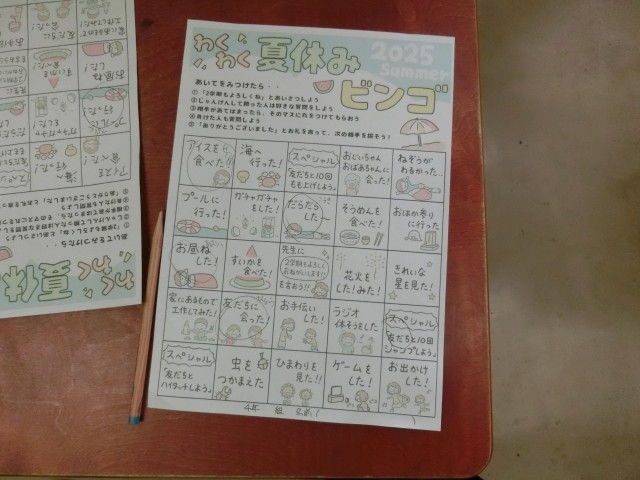 わくわく夏休み
2025
Summer
ビンゴ
あいてをみつけたら・・
①「2学期もよろしくね」とあいさつしよう
②じゃんけんして勝った人は好きな質問をしよう
③相手があてはまったら、そのマスに丸をつけてもらおう
④負けた人も質問しよう
⑤「ありがとうございました」とお礼を言って、次の相手を探そう！
アイスを食べた!!
海へ行った！
スペシャル
「友だちと10回ももあげしよう。」
おじいちゃんおばあちゃんに会った！
ねぞうがわるかった…
プールに行った！
ガチャガチャをした！
だらだらした
そうめんを食べた！
おはか参りに行った
お昼ねした！
すいかを食べた！
先生に「2学期もよろしくおねがいします!!」を言おう!!
花火をした！みた！
きれいな星を見た！
家にあるもので工作してみた！
友だちに会った！
お手伝いした！
ラジオ体そうをした
スペシャル
「友だちと10回ジャンプしよう。」
スペシャル
「友だちとハイタッチしよう。」
虫をつかまえた
ひまわりを見た!!
ゲームをした！
お出かけした！
4年 組 名前( )